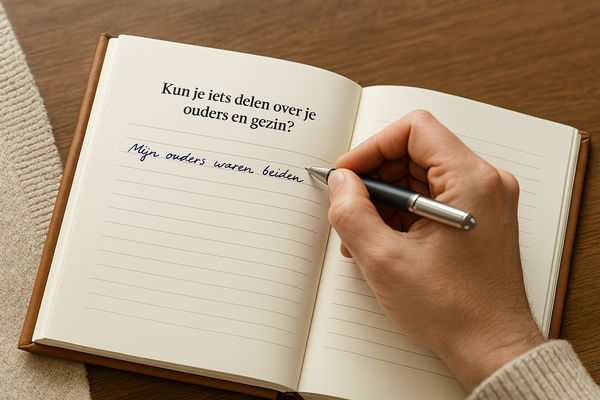 Kun je iets delen over je
ouders en gezin?
Mijn ouders waren beiden